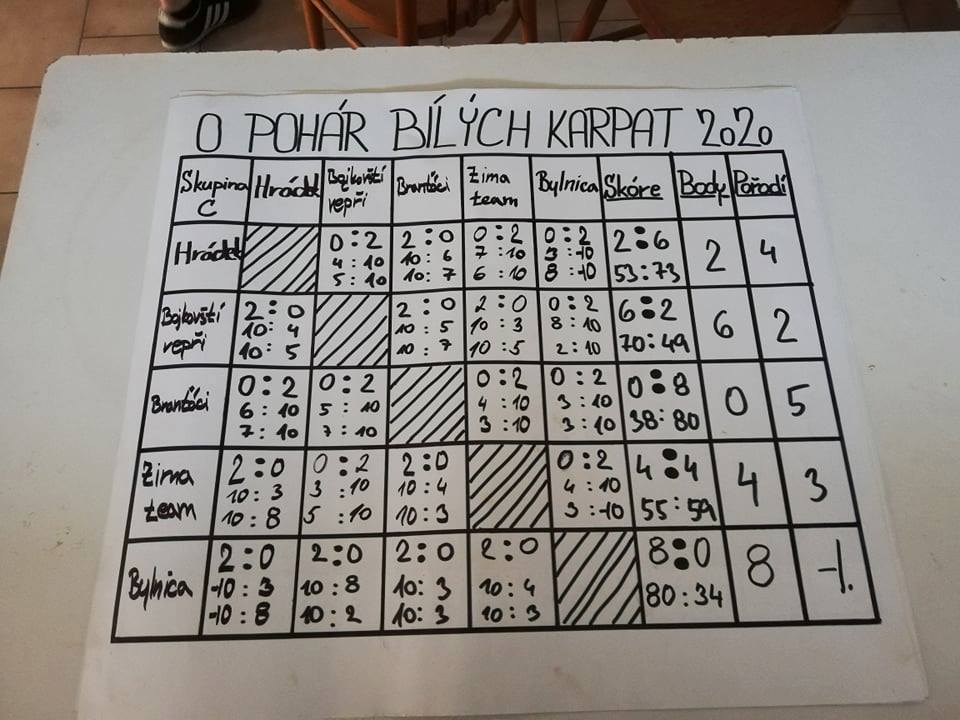 O POHÁR BÍLÝCH KARPAT 2020
Skupina C Hrádek Bojkovští repři Brantáci Zima team Bylnica Skóre Body Pořadí
Hrádek 0:2 2:0 0:2 0:2 2:6 2 4
4:10 10:6 7:10 3:10 53:73
5:10 10:7 6:10 8:10
Bojkovští repři 2:0 2:0 2:0 0:2 6:2 6 2
10:4 10:5 10:3 8:10 70:49
10:5 10:7 10:5 2:10
Brantáci 0:2 0:2 0:2 0:2 0:8 0 5
6:10 5:10 4:10 3:10 38:80
7:10 7:10 3:10 3:10
Zima team 2:0 0:2 2:0 0:2 4:4 4 3
10:3 3:10 10:4 4:10 55:59
10:8 5:10 10:3 3:10
Bylnica 2:0 2:0 2:0 2:0 8:0 8 1.
10:3 10:8 10:3 10:4 80:34
10:8 10:2 10:3 10:3